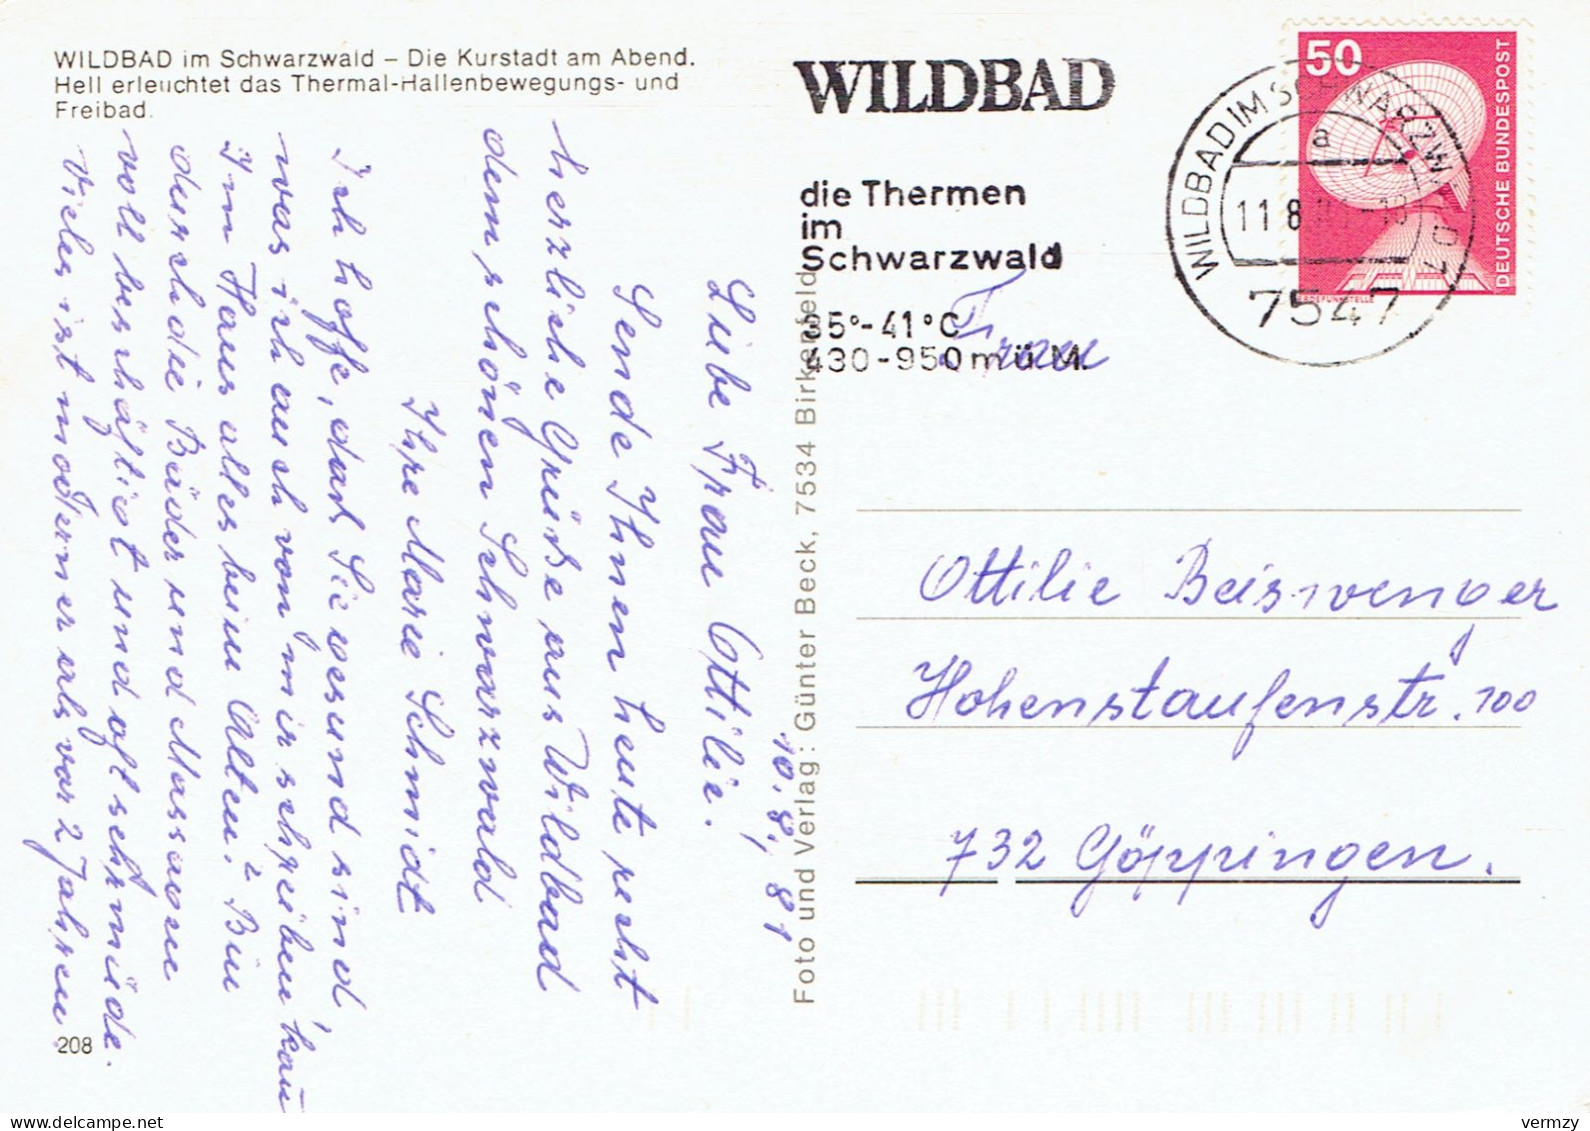 WILDBAD im Schwarzwald – Die Kurstadt am Abend.
Hell erleuchtet das Thermal-Hallenbewegungs- und
Freibad.
WILDBAD
die Thermen
im
Schwarzwald
35°-41°C
430-950 m ü. M.
WILDBAD IM SCHWARZWALD 1
a
11.8
7547
50
DEUTSCHE BUNDESPOST
ERDEFUNKSTELLE
10.8.81
Liebe Frau Ottilie.
Sende Ihnen heute recht
herzliche Grüße aus Wildbad
dem schönen Schwarzwald
Ihre Marie Schmidt
Ich hoffe, das Sie gesund sind,
was ich auch von mir schreiben kan
Im Haus alles beim Alten? Bin
durch die Bäder und Massagen
voll beschäftigt und oft sehr müde.
Vieles ist moderner als vor 2 Jahren.
208
Foto und Verlag: Günter Beck, 7534 Birkenfeld
Frau
Ottilie Beiswenger
Hohenstaufenstr. 100
732 Göppingen.
delcampe.net
vermzy